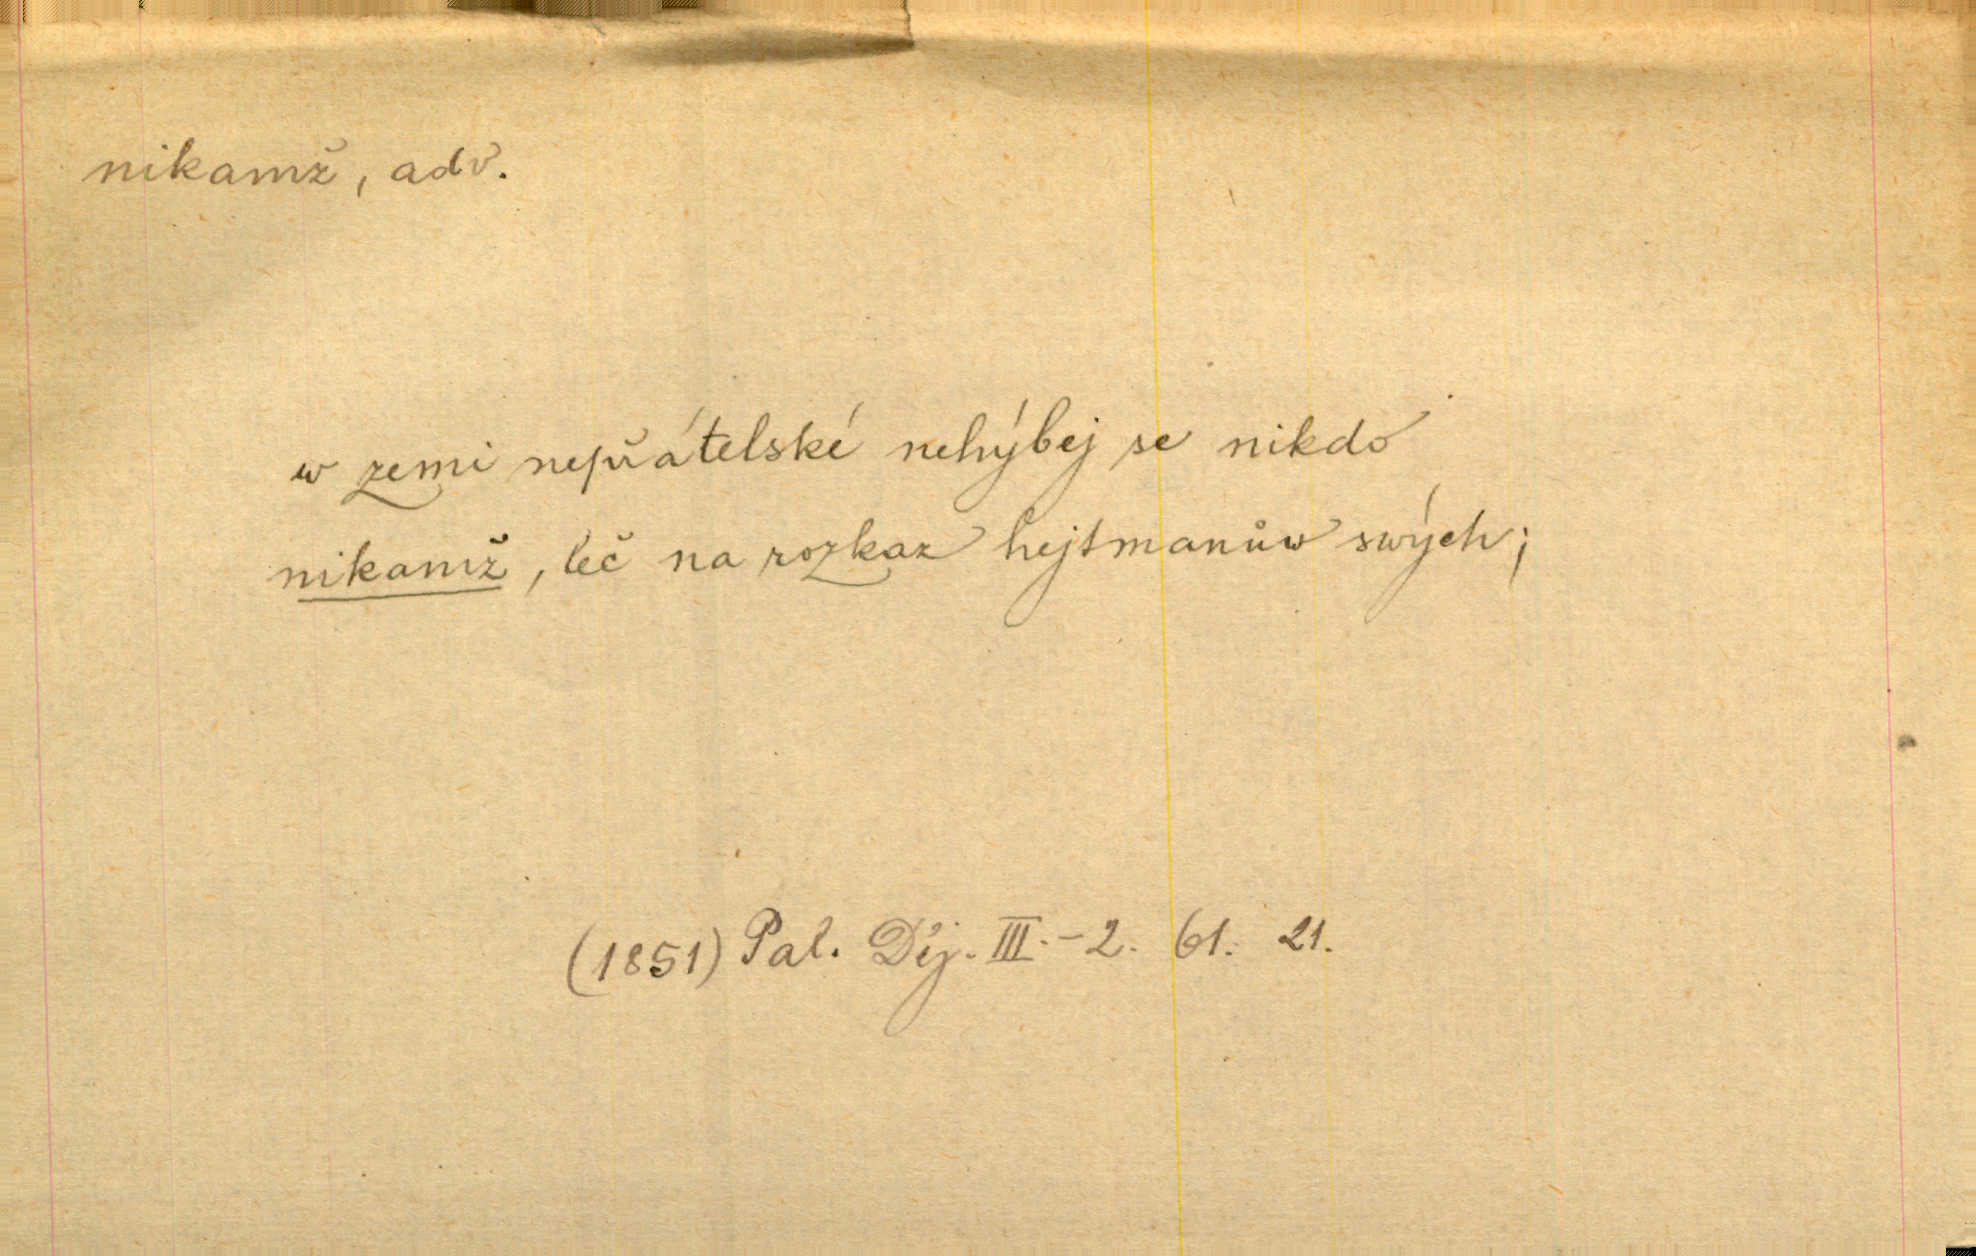 nikamž, adv.
w zemi nepřátelské nehýbej se nikdo
nikamž, leč na rozkaz hejtmanůw swých;
(1851) Pal. Děj. III.-2. 61. 21.